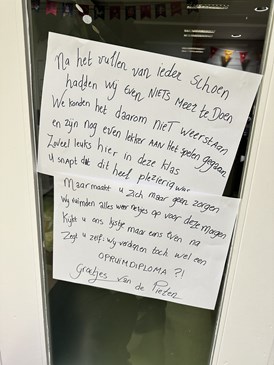 Na het vullen van ieder schoen
hadden wij even NIETS meer te Doen
We konden het daarom NIET weerstaan
en zijn nog even lekker AAN Het spelen gegaan
Zoveel leuks hier in deze klas
U snapt dat dit heel plezierig was
Maar maakt u zich maar geen zorgen
Wij ruimden alles weer netjes op voor deze morgen
Kijkt u ons lijstje maar eens even na
Zegt u zelf: wij verdienen toch wel een
OPRUIMDIPLOMA ?!
Groetjes van de Pieten